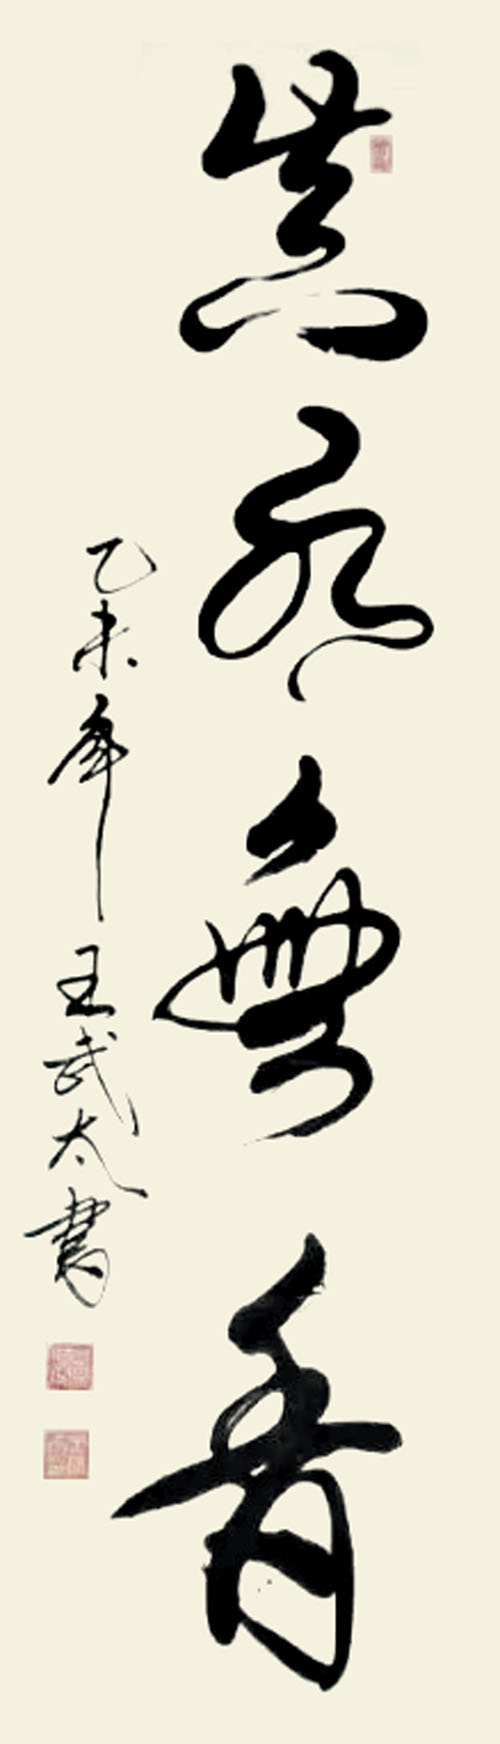 真水無香
乙未年王武太書